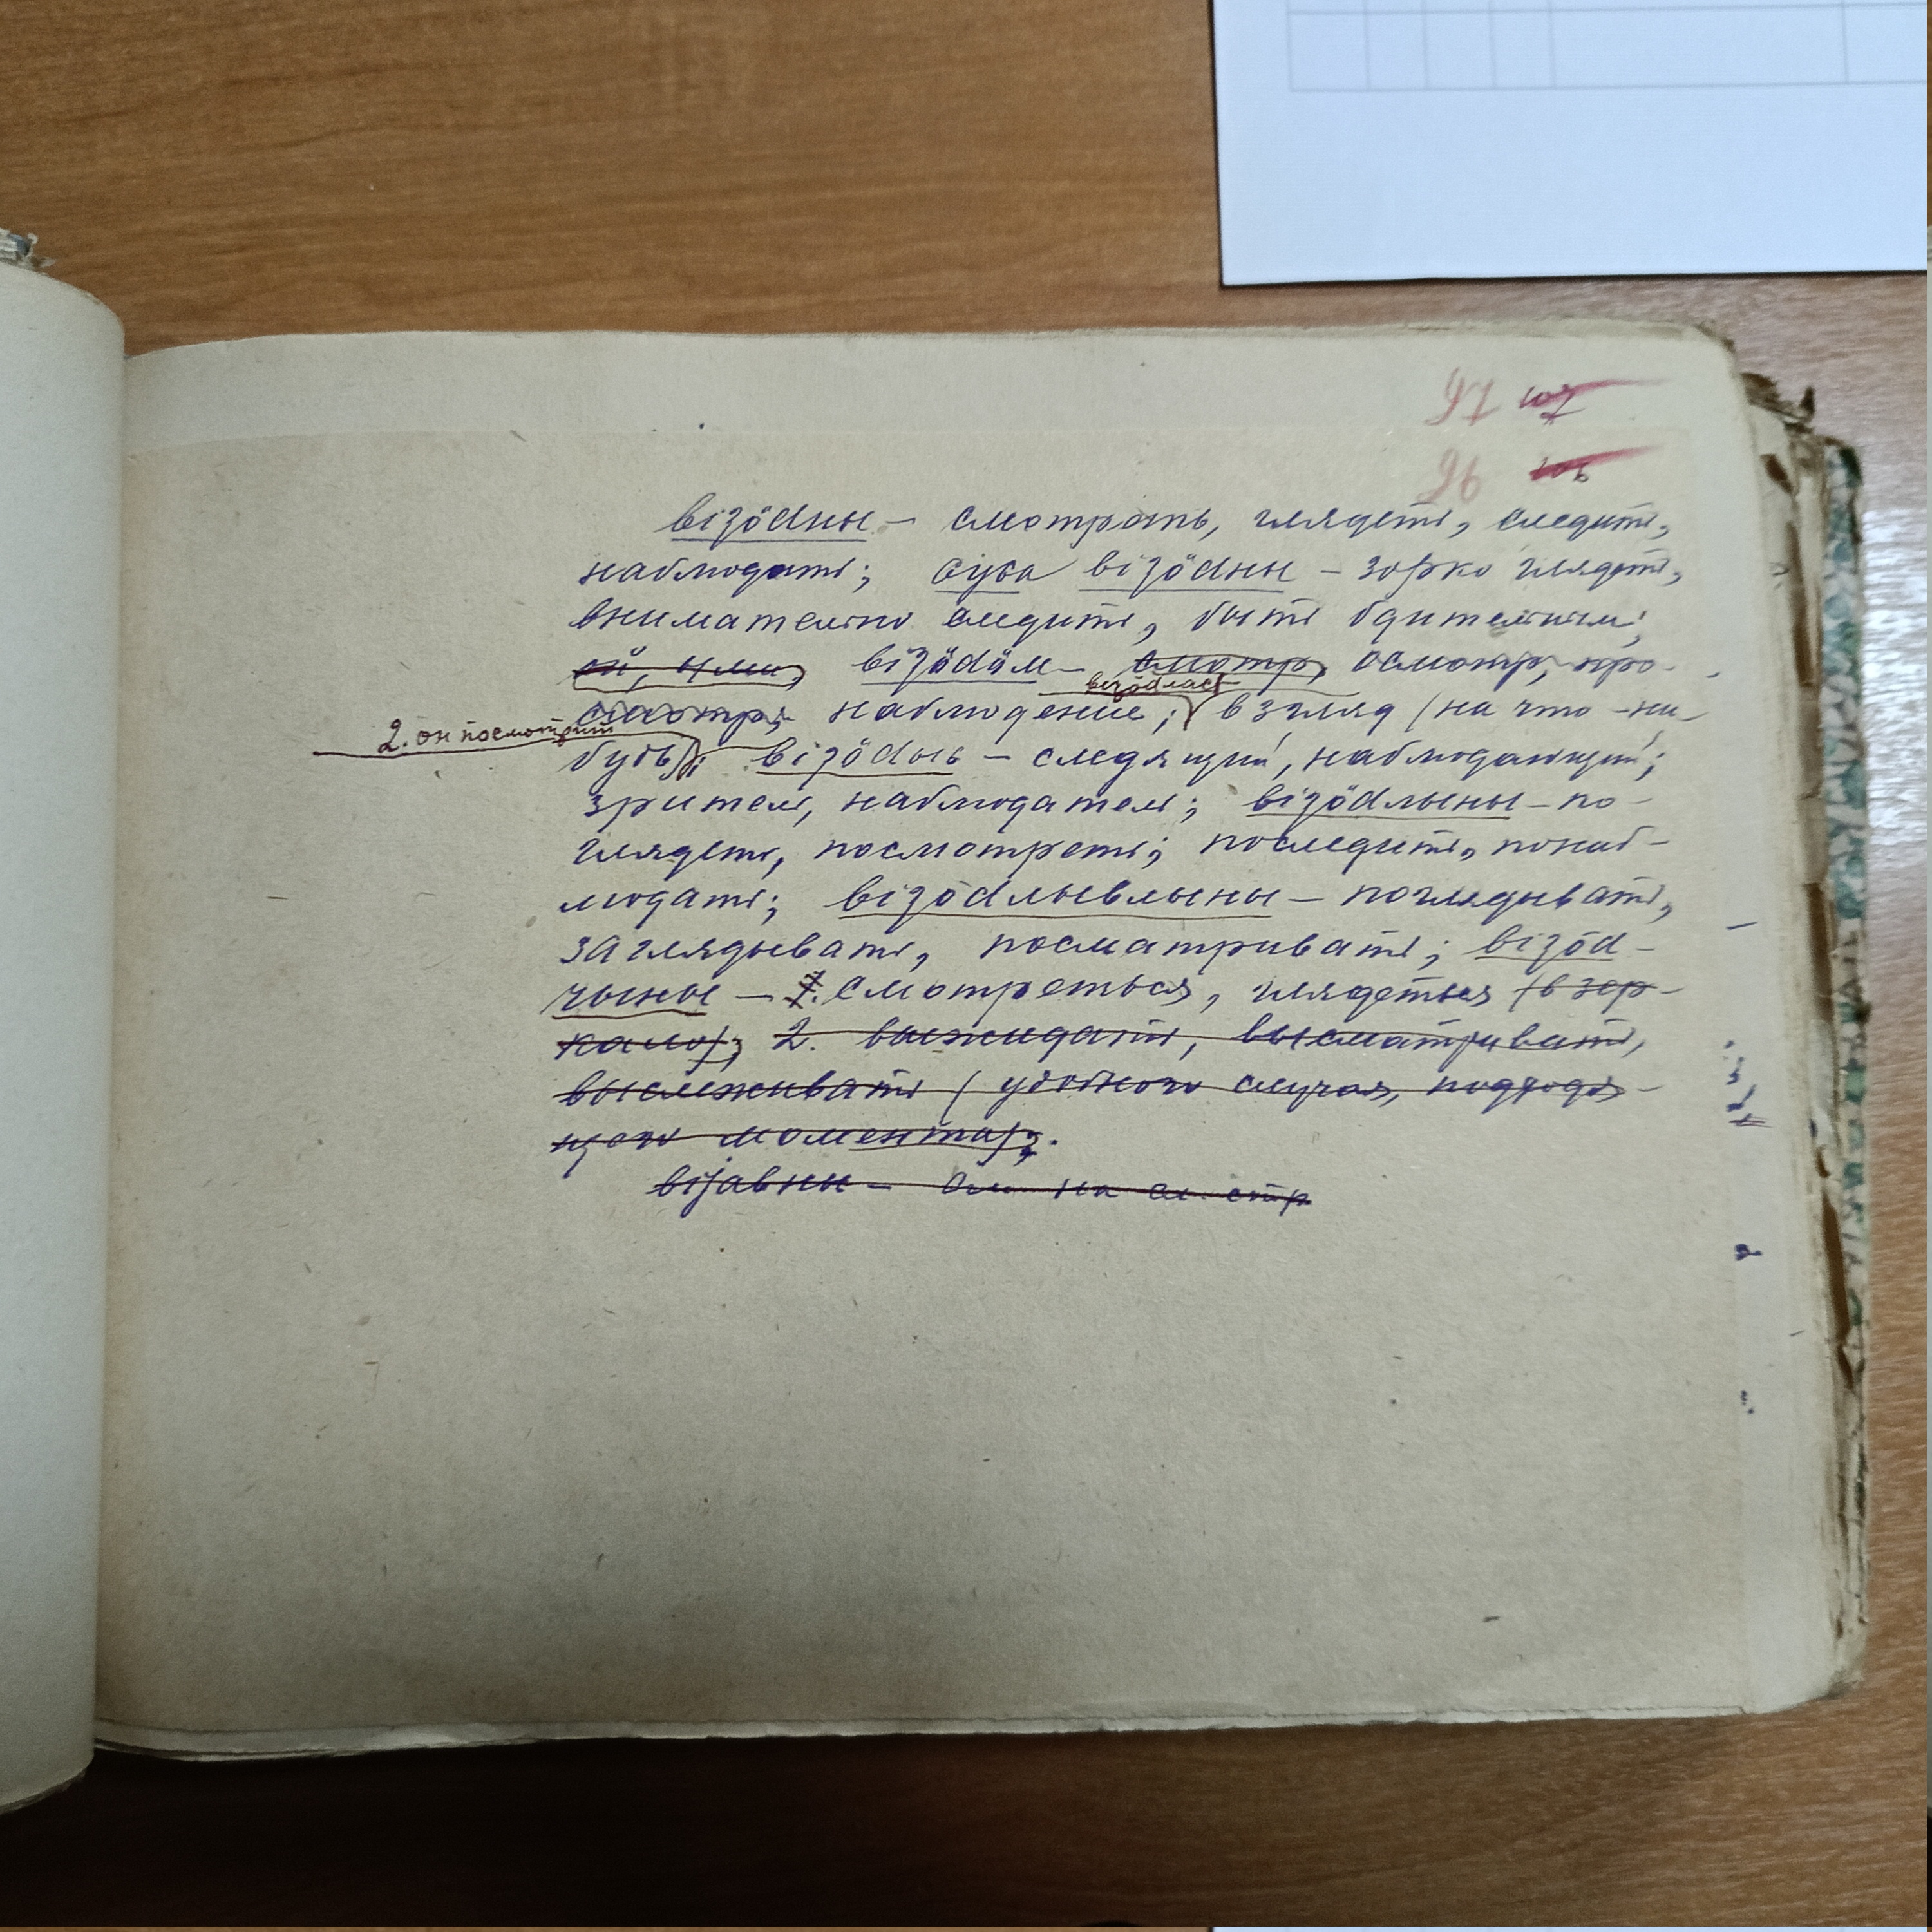 97 107
96 106
візödны – смотреть, глядеть, следить,
наблюдать; суса візödны – зорко глядеть,
внимательно следить, быть бдительным;
візödöм – смотр, осмотр, про-
візödлас
смотр, наблюдение; взгляд (на что-ни-
2. он посмотрит
будь); візödыс – следящий, наблюдающий;
зритель, наблюдатель; візödлыны – по-
глядеть, посмотреть; последить, понаб-
людать; візödлывлыны – поглядывать,
заглядывать, посматривать; візöd-
чыны – 1. смотреться, глядеться (в зер-
кало); 2. выжидать, высматривать,
выслеживать (удобного случая, подходя-
щего момента);.
віјавны – см. на сл. стр